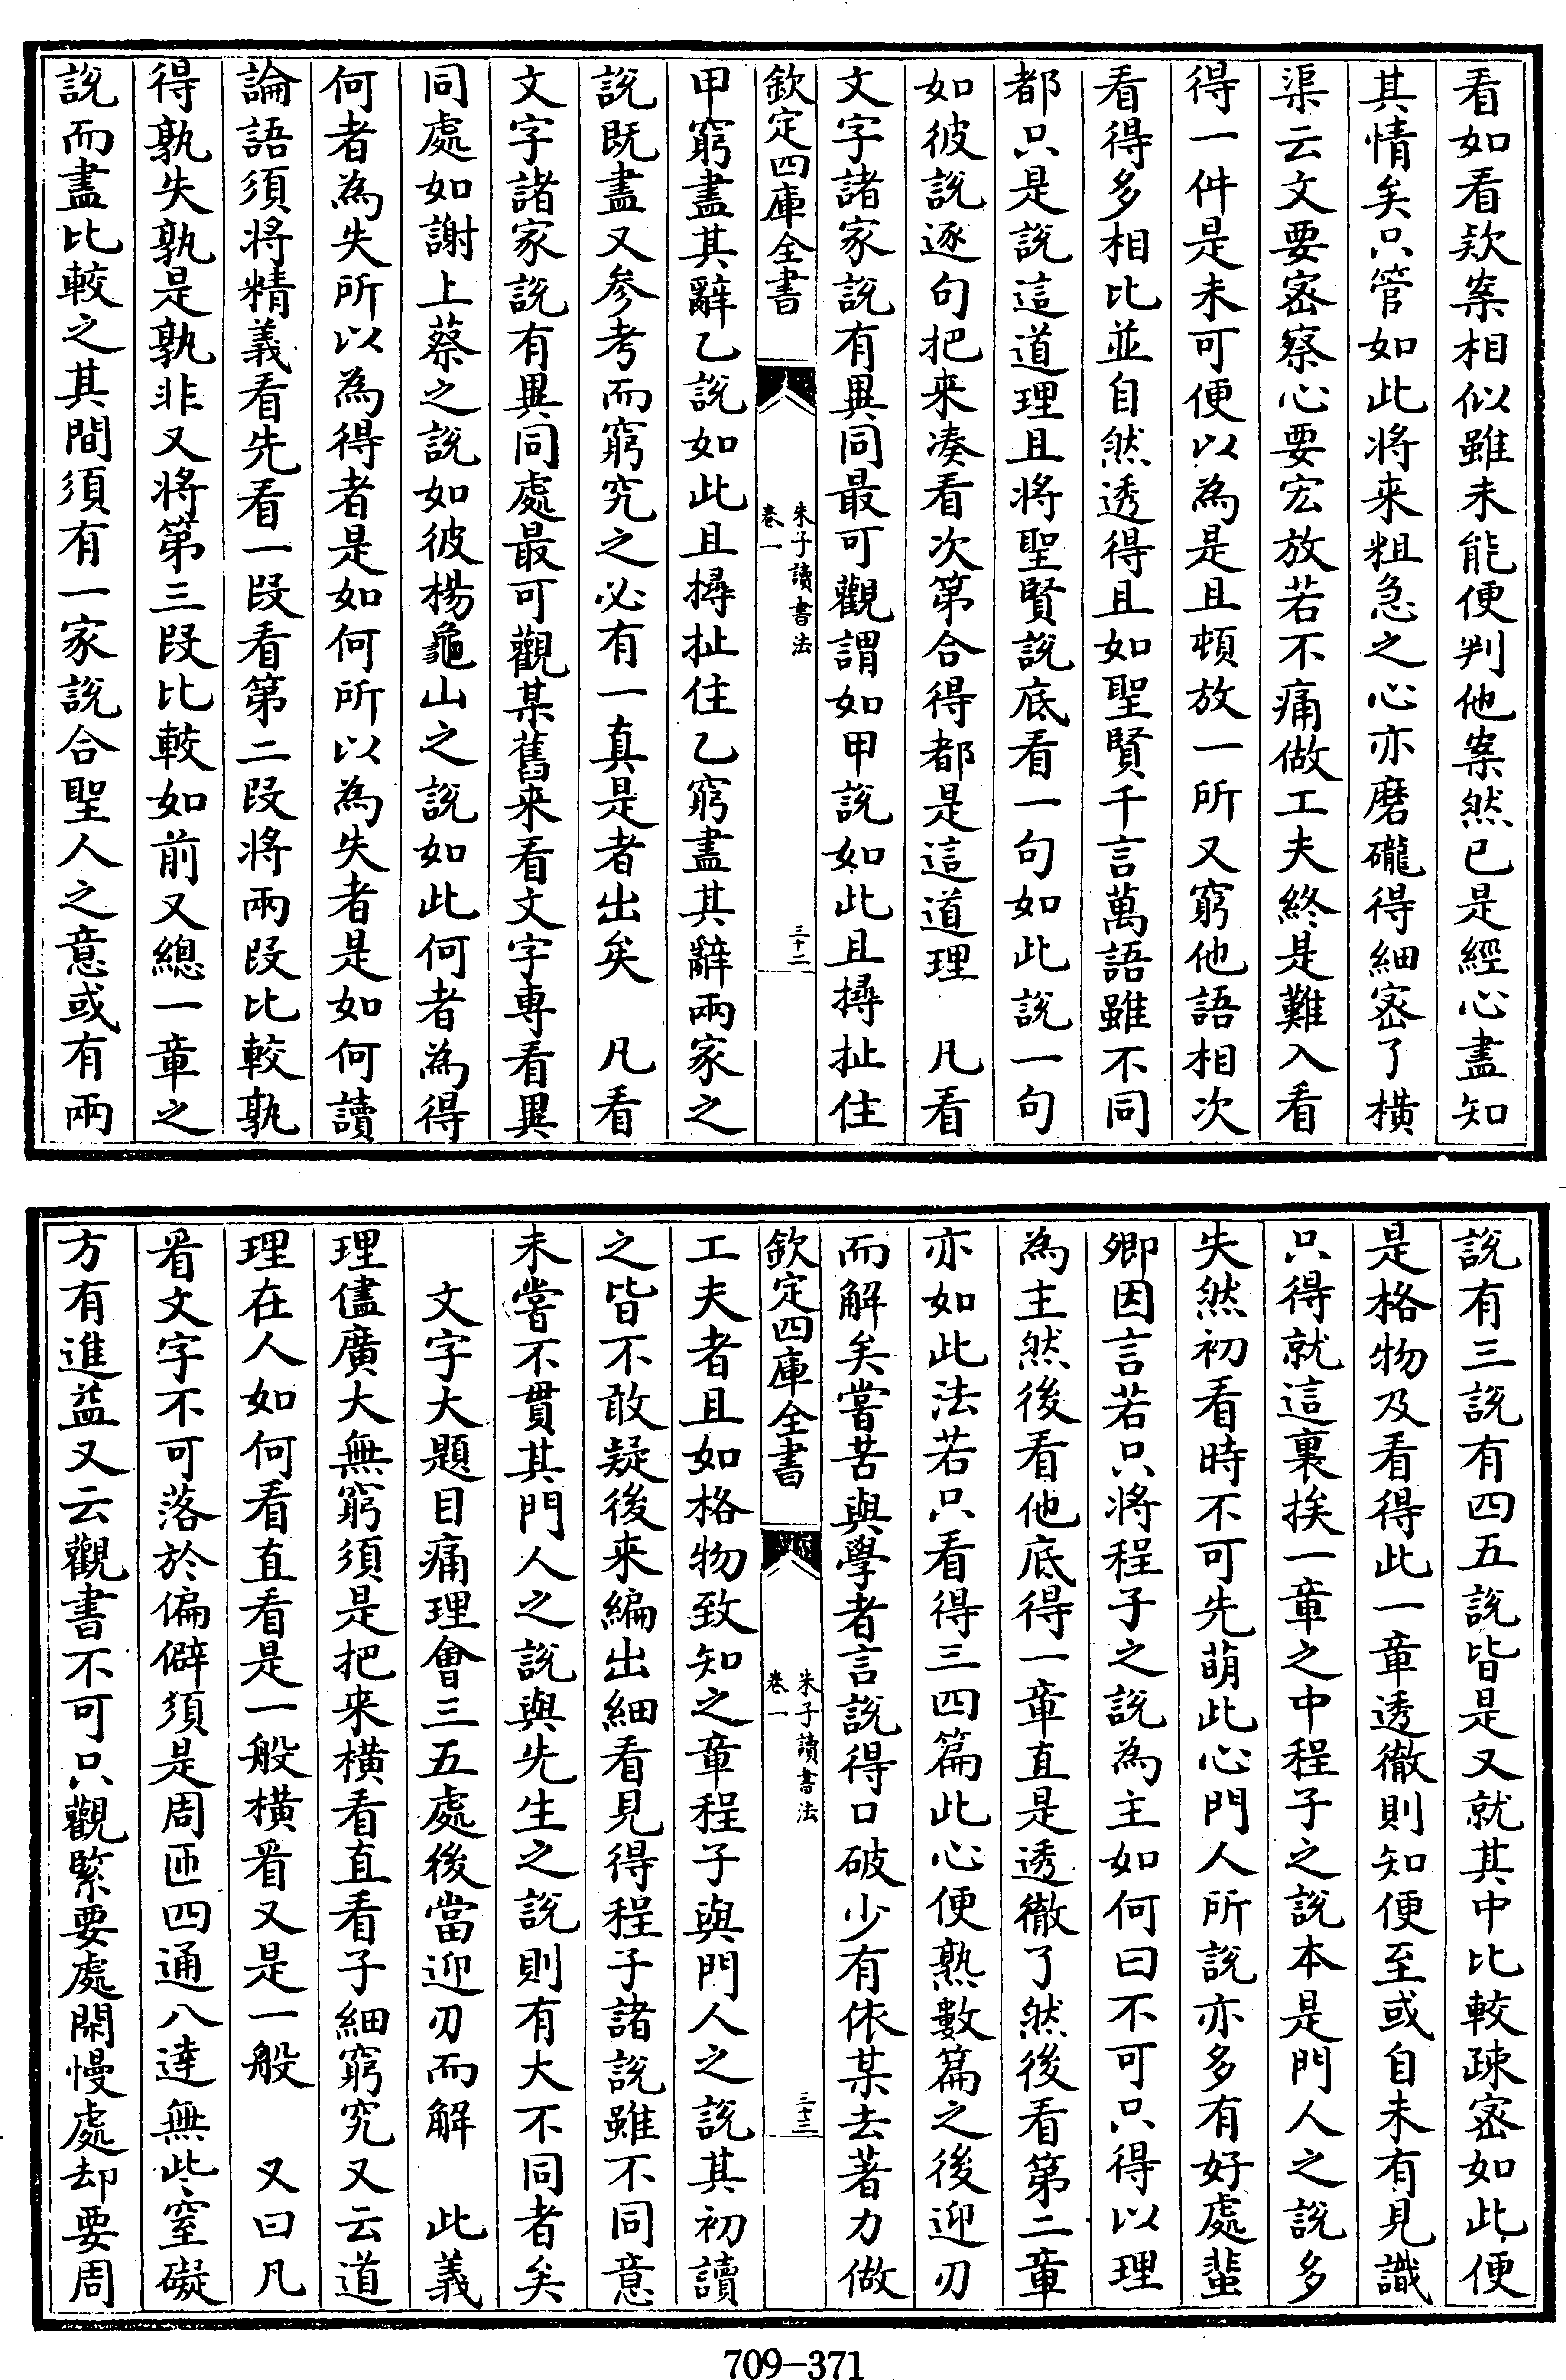 看如看欵案相似雖未能便判他案然已是經心盡知
其情矣只管如此将来粗急之心亦磨礲得細宻了横
渠云文要宻察心要宏放若不痛做工夫終是難入看
得一件是未可便以為是且頓放一所又窮他語相次
看得多相比並自然透得且如聖賢千言萬語雖不同
都只是說這道理且將聖賢說底看一句如此說一句
如彼說逐句把来凑看次第合得都是這道理　凡看
文字諸家說有異同最可觀謂如甲說如此且撏扯住
欽定四庫全書
朱子讀書法
卷一
三十二
甲窮盡其辭乙說如此且撏扯住乙窮盡其辭兩家之
說既盡又参考而窮究之必有一真是者出矣　凡看
文字諸家說有異同處最可觀某舊来看文字專看異
同處如謝上蔡之說如彼楊龜山之說如此何者為得
何者為失所以為得者是如何所以為失者是如何讀
論語須将精義看先看一段看第二段將兩段比較孰
得孰失孰是孰非又将第三段比較如前又總一章之
說而盡比較之其間須有一家說合聖人之意或有兩
說有三說有四五說皆是又就其中比較疎宻如此便
是格物及看得此一章透徹則知便至或自未有見識
只得就這裏挨一章之中程子之說本是門人之說多
失然初看時不可先萌此心門人所說亦多有好處蜚
卿因言若只將程子之說為主如何曰不可只得以理
為主然後看他底得一章直是透徹了然後看第二章
亦如此法若只看得三四篇此心便熟數篇之後迎刃
而解矣嘗苦與學者言說得口破少有依某去著力做
欽定四庫全書
朱子讀書法
卷一
三十三
工夫者且如格物致知之章程子與門人之說其初讀
之皆不敢疑後来編出細看見得程子諸說雖不同意
未嘗不貫其門人之說與先生之說則有大不同者矣
文字大題目痛理會三五處後當迎刃而解　此義
理儘廣大無窮須是把来横看直看子細窮究又云道
理在人如何看直看是一般横看又是一般　又曰凡
看文字不可落於偏僻須是周匝四通八達無些窒礙
方有進益又云觀書不可只觀緊要處閑慢處却要周
709-371